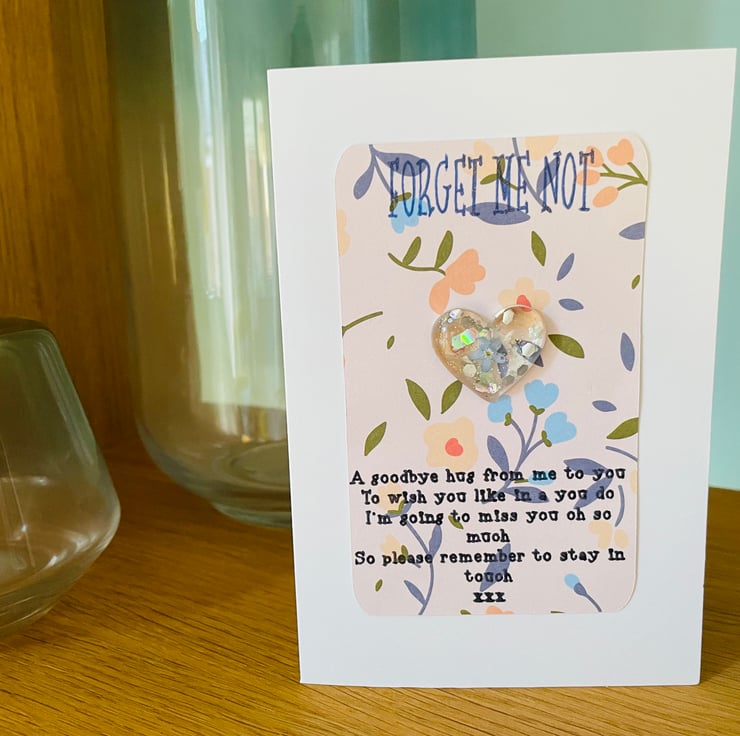 FORGET ME NOT
A goodbye hug from me to you
To wish you like in a you do
I'm going to miss you oh so
much
So please remember to stay in
touch
xxx